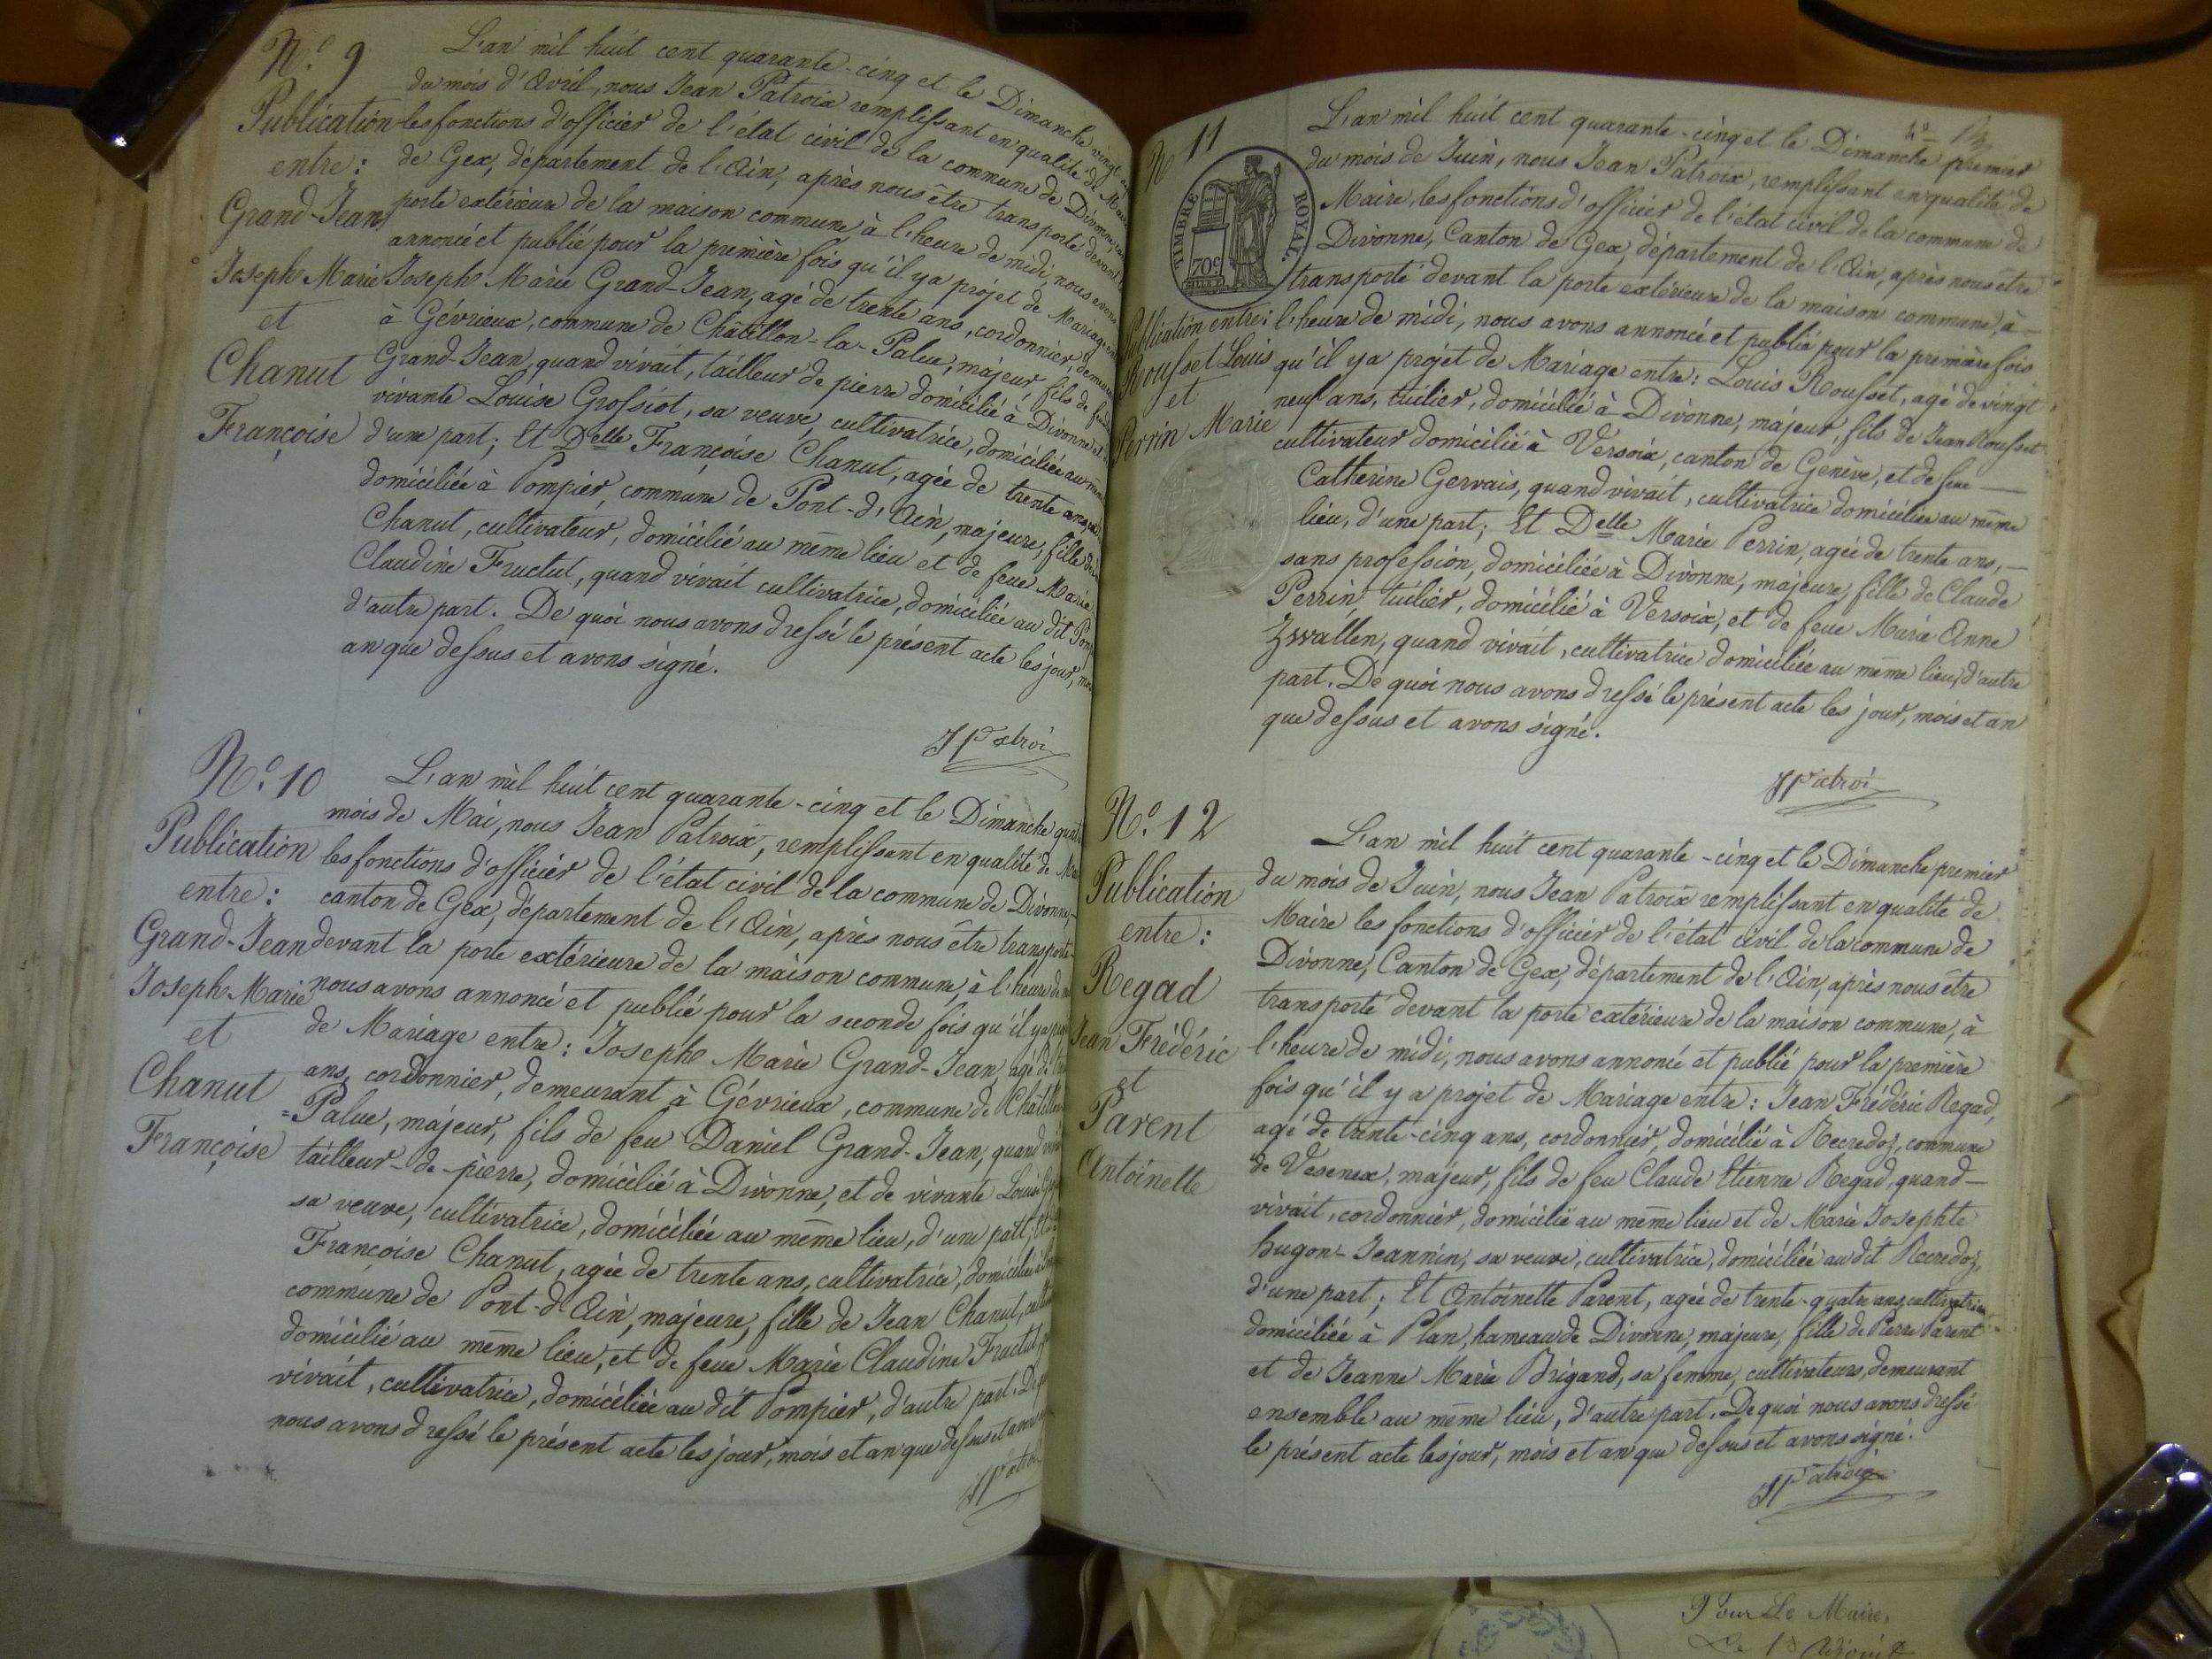 N.º 9
Publication
entre :
Grand-Jean
Joseph Marie
et
Chanut
Françoise
L'an mil huit cent quarante-cinq et le Dimanche vingt
du mois d'Avril, nous Jean Patroix remplissant en qualité de
les fonctions d'officier de l'état civil de la commune de Divonne
de Gex, département de l'Ain, après nous être transporté devant
porte extérieure de la maison commune à l'heure de midi, nous avons
annoncé et publié pour la première fois qu'il y a projet de Mariage
Joseph Marie Grand-Jean, agé de trente ans, cordonnier,
à Gévrieux, commune de Châtillon-la-Palue, majeur, fils de
Grand-Jean, quand vivait, tailleur de pierre domicilié à Divonne et
vivante Louise Grossiot, sa veuve, cultivatrice, domiciliée au
d'une part ; Et Delle Françoise Chanut, agée de trente ans
domiciliée à Pompier, commune de Pont-d'Ain, majeure, fille de
Chanut, cultivateur, domicilié au même lieu et de feue Marie
Claudine Fructut, quand vivait cultivatrice, domiciliée au dit
d'autre part. De quoi nous avons dressé le présent acte les jour,
an que dessus et avons signé.
JPatroi
N.º 10
Publication
entre :
Grand-Jean
Joseph Marie
et
Chanut
Françoise
L'an mil huit cent quarante-cinq et le Dimanche
mois de Mai, nous Jean Patroix, remplissant en qualité de
les fonctions d'officier de l'état civil de la commune de Divonne,
canton de Gex, département de l'Ain, après nous être transporté
devant la porte extérieure de la maison commune, à l'heure de
nous avons annoncé et publié pour la seconde fois qu'il y a
de Mariage entre : Joseph Marie Grand-Jean, agé de
ans, cordonnier, demeurant à Gévrieux, commune de
=Palue, majeur, fils de feu Daniel Grand-Jean, quand
tailleur-de-pierre, domicilié à Divonne, et de vivante Louise
sa veuve, cultivatrice, domiciliée au même lieu, d'une part ;
Françoise Chanut, agée de trente ans, cultivatrice, domiciliée
commune de Pont-d'Ain, majeure, fille de Jean Chanut,
domicilié au même lieu, et de feue Marie Claudine Fructut,
vivait, cultivatrice, domiciliée au dit Pompier, d'autre part.
nous avons dressé le présent acte les jour, mois et an que dessus et
N.º 11
TIMBRE ROYAL.
70c
Publication entre :
Rousset Louis
et
Perrin Marie
L'an mil huit cent quarante-cinq et le Dimanche premier
du mois de Juin, nous Jean Patroix, remplissant en qualité de
Maire, les fonctions d'officier de l'état civil de la commune de
Divonne, Canton de Gex, département de l'Ain, après nous être
transporté devant la porte extérieure de la maison commune, à
l'heure de midi, nous avons annoncé et publié pour la première fois
qu'il y a projet de Mariage entre : Louis Rousset, agé de vingt
neuf ans, tuilier, domicilié à Divonne, majeur, fils de Jean Rousset
cultivateur domicilié à Versoix, canton de Genève, et de feue
Catherine Gervais, quand vivait, cultivatrice domiciliée au même
lieu, d'une part ; Et Delle Marie Perrin, agée de trente ans,
sans profession, domiciliée à Divonne, majeure, fille de Claude
Perrin tuilier, domicilié à Versoix, et de feue Marie Anne
Zwallen, quand vivait, cultivatrice domiciliée au même lieu, d'autre
part. De quoi nous avons dressé le présent acte les jour, mois et an
que dessus et avons signé.
JPatroi
N.º 12
Publication
entre :
Regad
Jean Frédéric
et
Parent
Antoinette
L'an mil huit cent quarante-cinq et le Dimanche premier
du mois de Juin, nous Jean Patroix remplissant en qualité de
Maire les fonctions d'officier de l'état civil de la commune de
Divonne, Canton de Gex, département de l'Ain, après nous être
transporté devant la porte extérieure de la maison commune, à
l'heure de midi, nous avons annoncé et publié pour la première
fois qu'il y a projet de Mariage entre : Jean Frédéric Regad,
agé de trente-cinq ans, cordonnier, domicilié à Recredoz, commune
de Vesenex, majeur, fils de feu Claude Etienne Regad, quand
vivait, cordonnier, domicilié au même lieu et de Marie Josephte
hugon-Jeannin, sa veuve, cultivatrice, domiciliée au dit Recredoz,
d'une part ; Et Antoinette Parent, agée de trente-quatre ans, cultivatrice
domiciliée à Plan, hameau de Divonne, majeure, fille de Pierre Parent
et de Jeanne Marie Brigand, sa femme, cultivateurs, demeurant
ensemble au même lieu, d'autre part. De quoi nous avons dressé
le présent acte les jour, mois et an que dessus et avons signé.
JPatroix
Pour Le Maire,